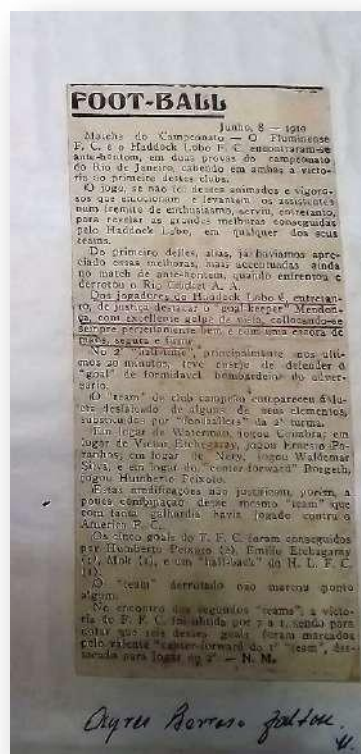 FOOT-BALL
Junho, 8 — 1910
Matchs do Campeonato — O Fluminense
F. C. e o Haddock Lobo F. C. encontraram-se
ante-hontem, em duas provas do campeonato
do Rio de Janeiro, cabendo em ambas a victo-
ria ao primeiro destes clubs.
O jogo, se não foi desses animados e vigoro-
sos que emocionam e levantam os assistentes
num fremito de enthusiasmo, serviu, entretanto,
para revelar as grandes melhoras conseguidas
pelo Haddock Lobo, em qualquer dos seus
teams.
Do primeiro delles, alias, já haviamos apre-
ciado essas melhoras, mais accentuadas ainda
no match de ante-hontem, quando enfrentou e
derrotou o Rio Cricket A. A.
Dos jogadores do Haddock Lobo é, entretan-
to, de justiça destacar o "goal-keeper" Mendon-
ça, com excellente golpe de vista, collocando-se
sempre perfeitamente bem e com uma
mãos, segura e firme.
No 2º "half-time", principalmente nos ulti-
mos 20 minutos, teve ensejo de defender o
"goal" de formidavel bombardeio do adver-
sario.
O "team" do club campeão compareceu
desfalcado de alguns de seus elementos,
substituidos por "foot-ballers" da 2ª turma.
Em logar de Waterman, jogou Coimbra; em
logar de Victor Etchegaray, jogou Ernesto Pa-
ranhos; em logar de Nery, jogou Waldemar
Silva, e em logar do "center-forward" Borgeth,
jogou Humberto Peixoto.
Estas modificações não justificam, porém, a
pouca combinação desse mesmo "team" que
com tanta galhardia havia jogado contra o
America F. C.
Os cinco goals do F. F. C. foram conseguidos
por Humberto Peixoto (2), Emilio Etchegaray
(1), (1), e um "half-back" do H. L. F. C.
(1).
O "team" derrotado não marcou ponto
algum.
No encontro dos segundos "teams", a victo-
ria do F. F. C. foi obtida por 7 a 1, sendo para
notar que seis desses goals foram marcados
pelo valente "center-forward do 1º "team", des-
tacado para jogar no 2º — N. M.
Barroso